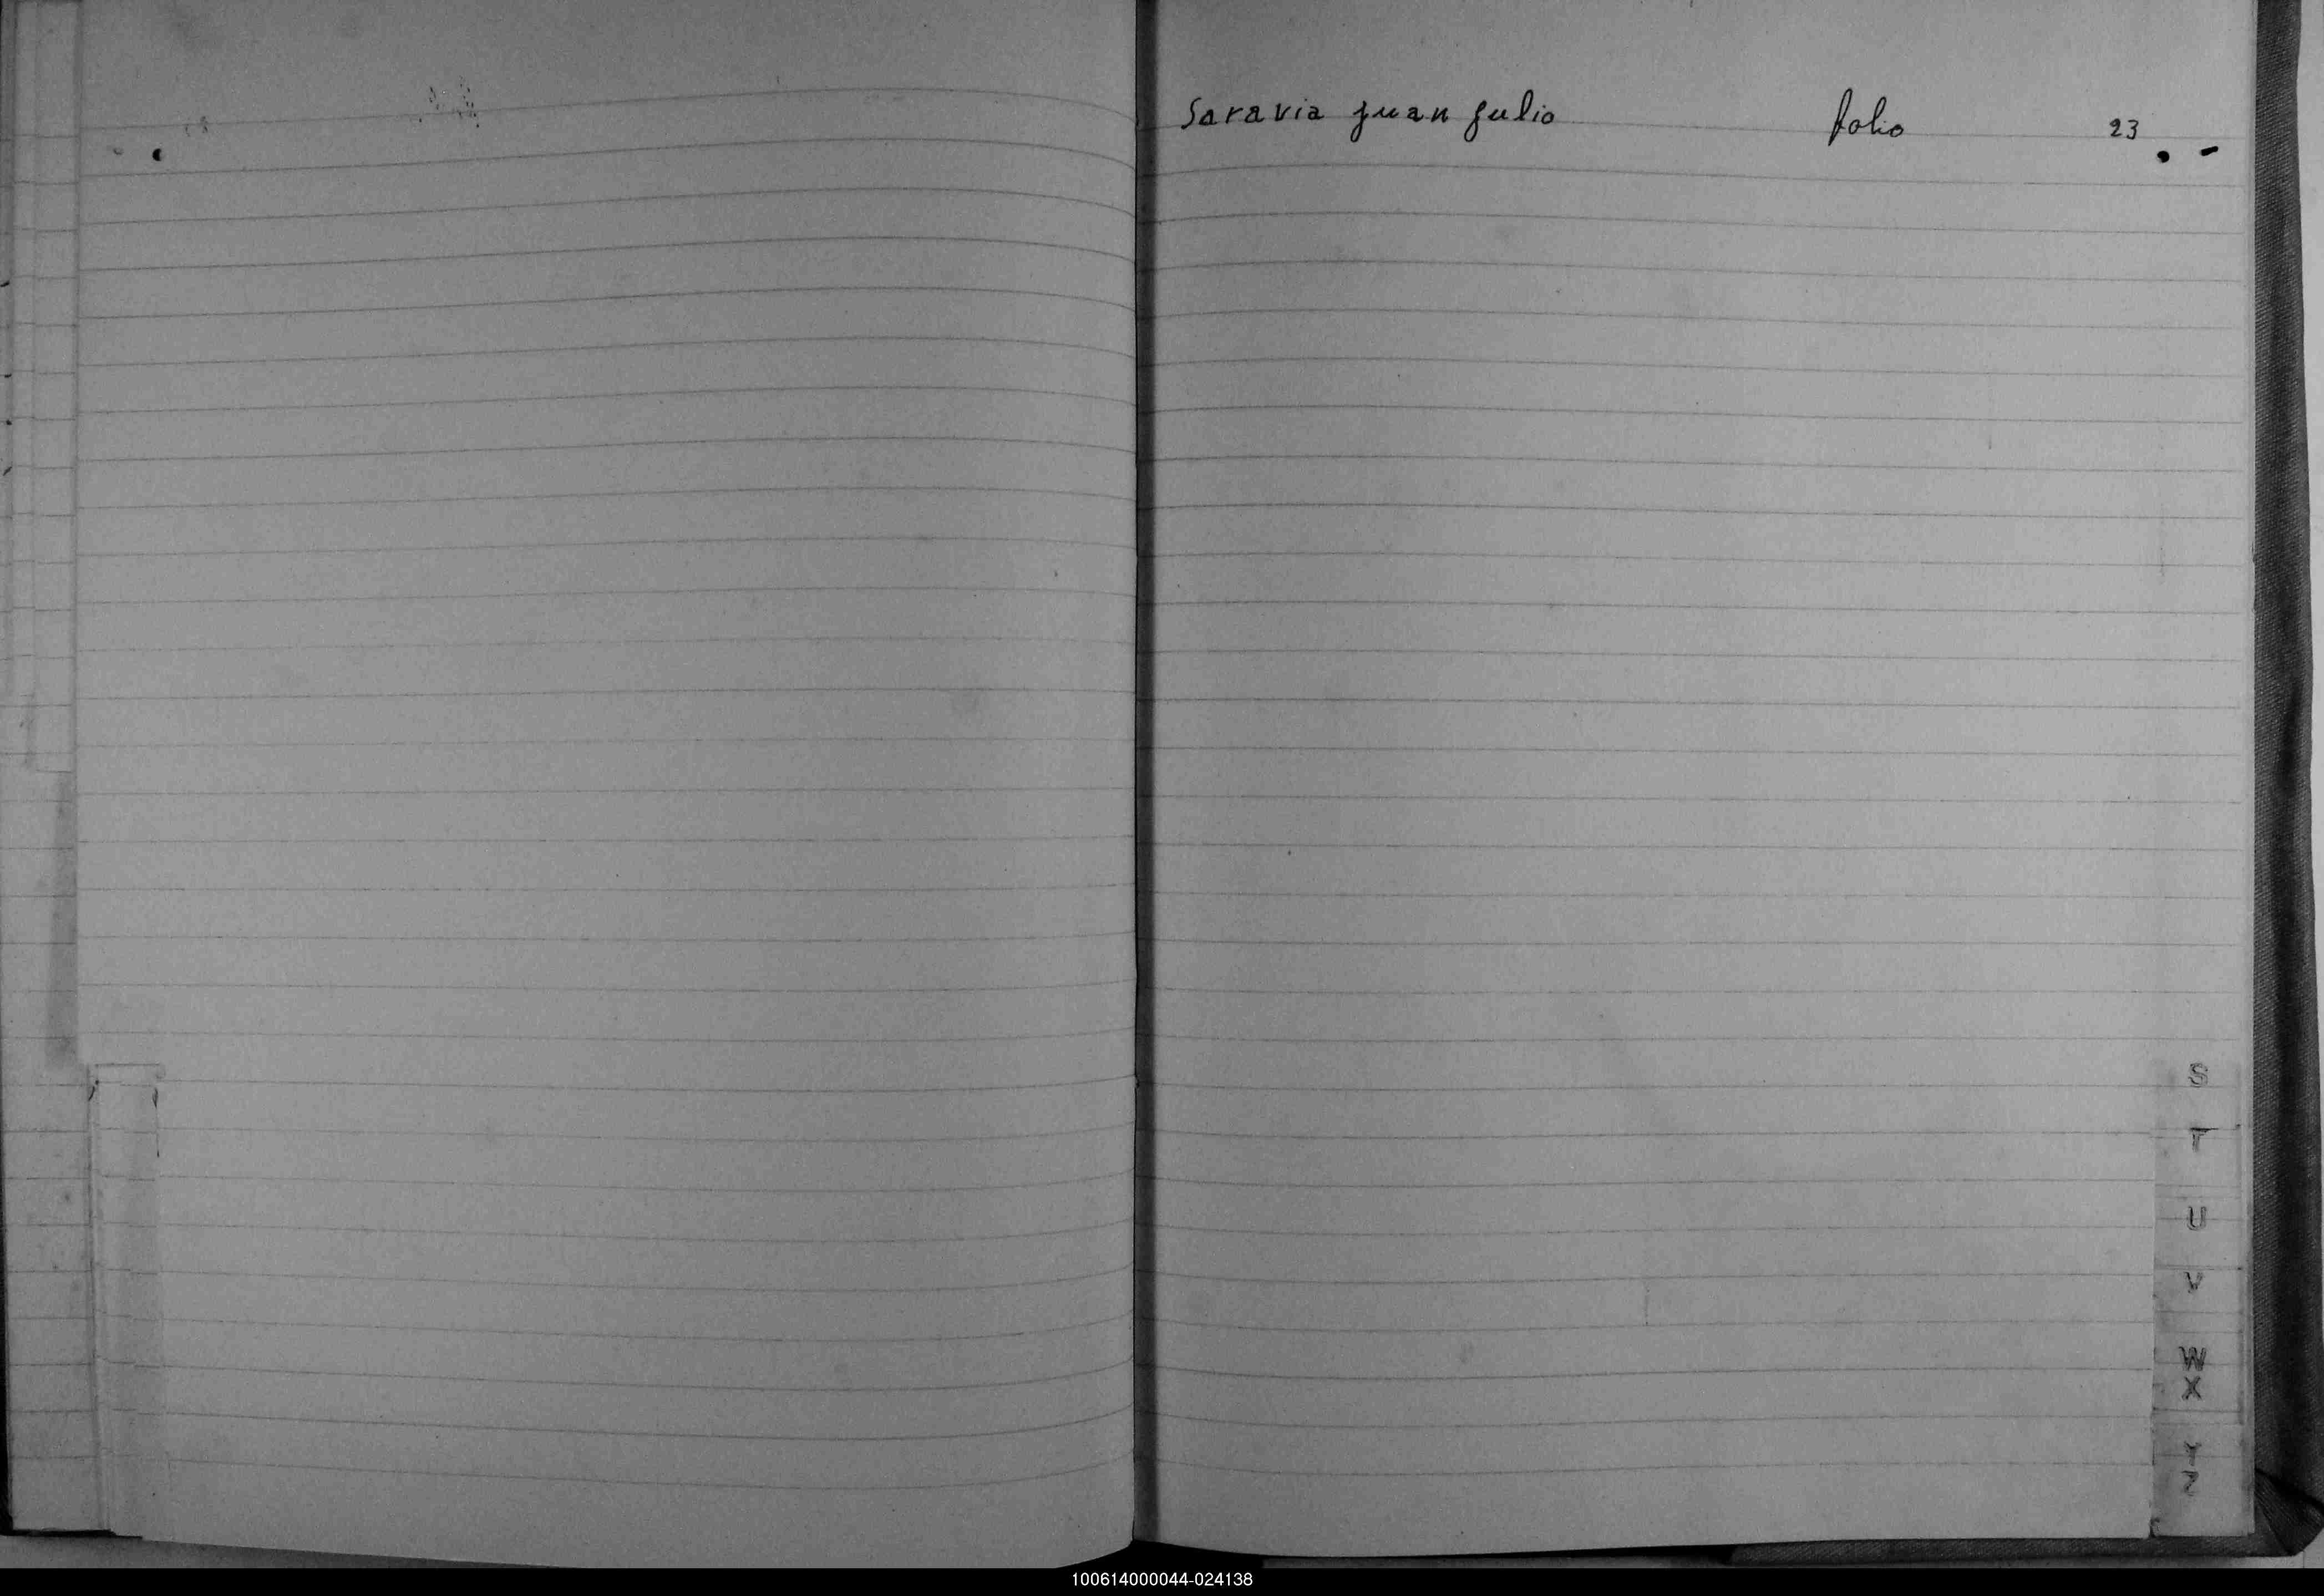 Saravia Juan Julio folio 23
S
T
U
V
W
X
Y
Z
100614000044-024138